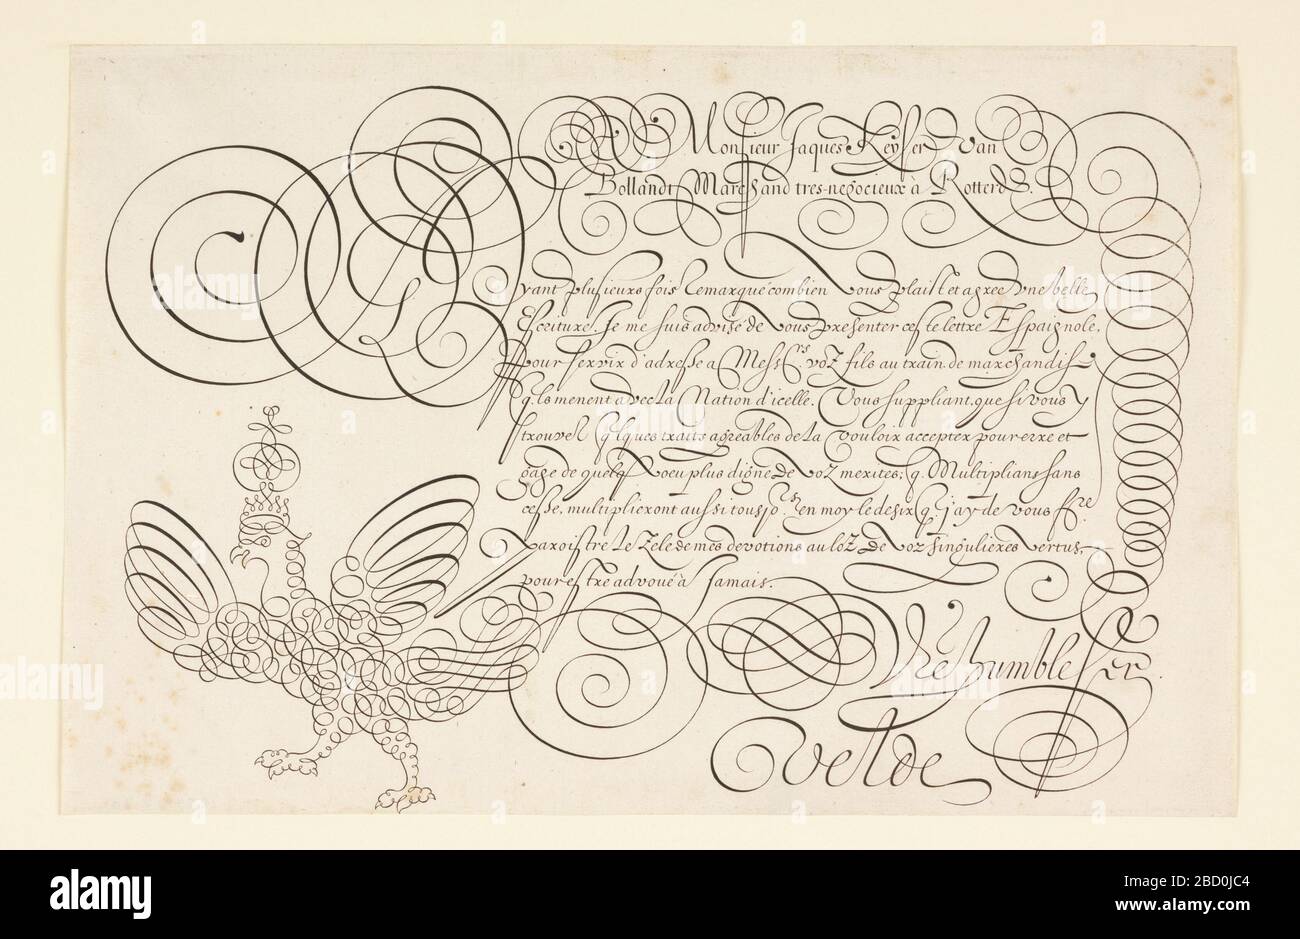 A Monsieur Jaques Keyser van
Bollandt Marchand tres-negocieux à Rotterd.
Ayant plusieurs fois Remarqué combien vous plaist et agree une belle
Escriture. Je me suis advisé de vous presenter ceste lettre Espaignole,
Pour servir d'adresse a Mess.rs voz fils au train de marchandise
q̃ ilz menent avecq la Nation d'icelle. Vous suppliant, que si vous y
trouvez q̃lques traits agreables de la vouloir accepter pour erre et
gage de quelq̃ voeu plus digne de voz merites; q̃ Multiplians sans
cesse, multiplieront aussi tousjo.rs en moy le desir q̃ j'ay de vous f.re
Paroistre le zele de mes devotions au loz de voz singulieres vertus,
pour estre advoué à Jamais.
Vre humble Ser.
Velde
alamy
Image ID: 2BD0JC4
www.alamy.com